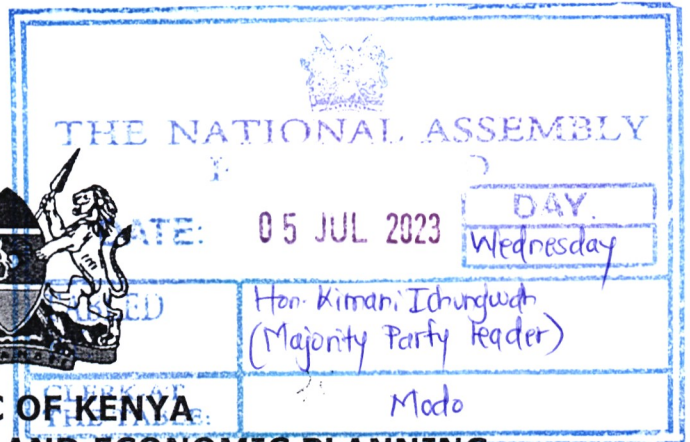 THE NATIONAL ASSEMBLY
DATE: 05 JUL 2023
DAY.
Wednesday
Hon. Kimani Ichungwah
(Majority Party Leader)
CLERK AT
THE TABLE: Modo
OF KENYA
AND ECONOMIC PLANNING